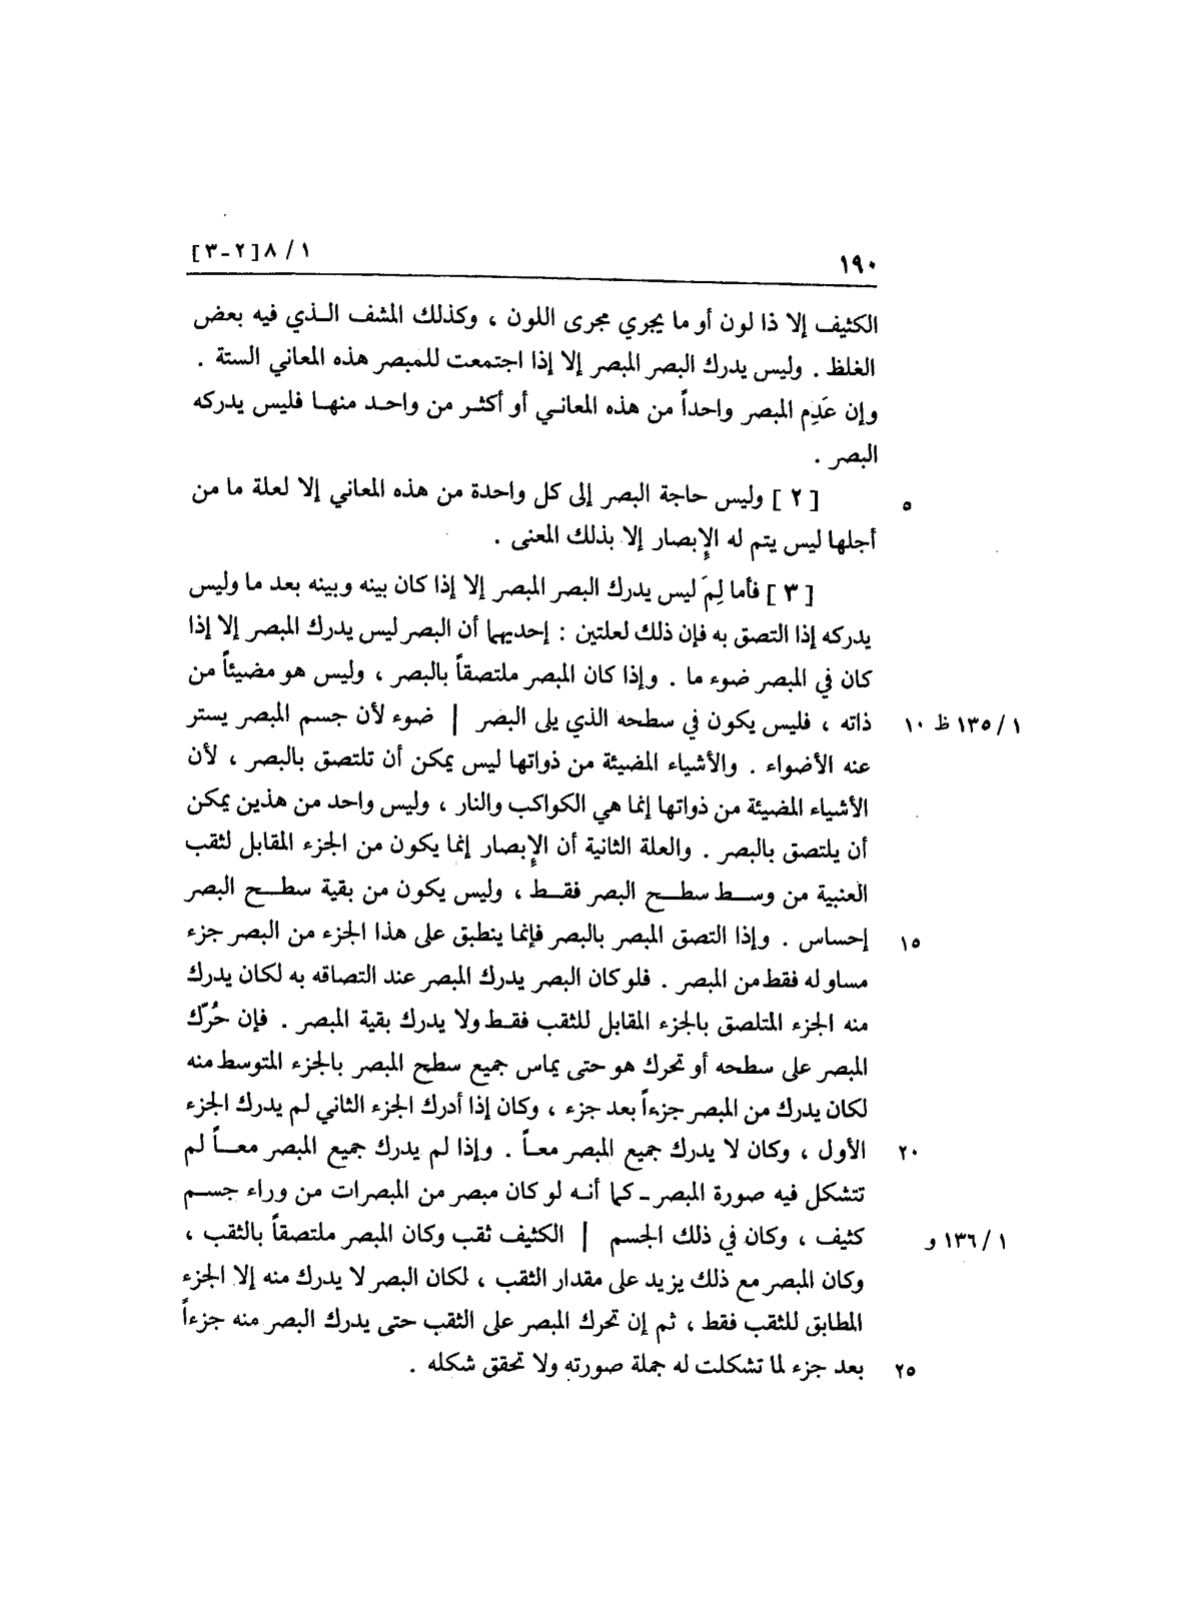 ١٩٠
١ / ٨ [٢ - ٣]
الكثيف إلا ذا لون أو ما يجري مجرى اللون ، وكذلك المشف الـذي فيه بعض
الغلظ . وليس يدرك البصر المبصر إلا إذا اجتمعت للمبصر هذه المعاني الستة .
وإن عَدِم المبصر واحداً من هذه المعانـي أو أكثـر من واحـد منهـا فليس يدركه
البصر .
٥ [ ٢ ] وليس حاجة البصر إلى كل واحدة من هذه المعاني إلا لعلة ما من
أجلها ليس يتم له الإبصار إلا بذلك المعنى .
[ ٣ ] فأما لِمَ ليس يدرك البصر المبصر إلا إذا كان بينه وبينه بعد ما وليس
يدركه إذا التصق به فإن ذلك لعلتين : إحديهما أن البصر ليس يدرك المبصر إلا إذا
كان في المبصر ضوء ما . وإذا كان المبصر ملتصقاً بالبصر ، وليس هو مضيئاً من
١ / ١٣٥ ظ ١٠ ذاته ، فليس يكون في سطحه الذي يلى البصر | ضوء لأن جسم المبصر يستر
عنه الأضواء . والأشياء المضيئة من ذواتها ليس يمكن أن تلتصق بالبصر ، لأن
الأشياء المضيئة من ذواتها إنما هي الكواكب والنار ، وليس واحد من هذين يمكن
أن يلتصق بالبصر . والعلة الثانية أن الإبصار إنما يكون من الجزء المقابل لثقب
العنبية من وســط سطــح البصر فقــط ، وليس يكون من بقية سطــح البصر
١٥ إحساس . وإذا التصق المبصر بالبصر فإنما ينطبق على هذا الجزء من البصر جزء
مساو له فقط من المبصر . فلو كان البصر يدرك المبصر عند التصاقه به لكان يدرك
منه الجزء المتلصق بالجزء المقابل للثقب فقـط ولا يدرك بقية المبصر . فإن حُرّك
المبصر على سطحه أو تحرك هو حتى يماس جميع سطح المبصر بالجزء المتوسط منه
لكان يدرك من المبصر جزءاً بعد جزء ، وكان إذا أدرك الجزء الثاني لم يدرك الجزء
٢٠ الأول ، وكان لا يدرك جميع المبصر معـاً . وإذا لم يدرك جميع المبصر معــاً لم
تتشكل فيه صورة المبصر ـ كما أنـه لو كان مبصر من المبصرات من وراء جســم
١ / ١٣٦ و كثيف ، وكان في ذلك الجسم | الكثيف ثقب وكان المبصر ملتصقاً بالثقب ،
وكان المبصر مع ذلك يزيد على مقدار الثقب ، لكان البصر لا يدرك منه إلا الجزء
المطابق للثقب فقط ، ثم إن تحرك المبصر على الثقب حتى يدرك البصر منه جزءاً
٢٥ بعد جزء لما تشكلت له جملة صورته ولا تحقق شكله .